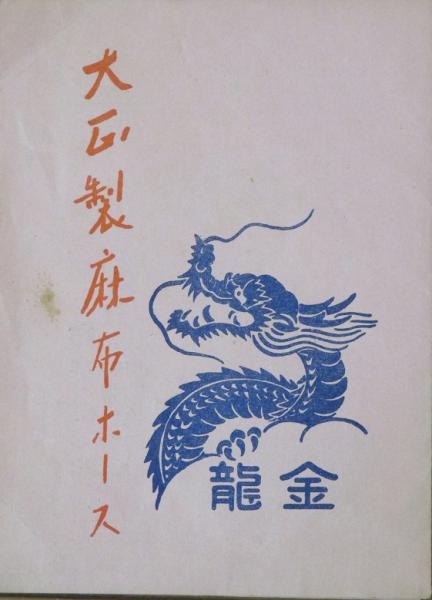 大正製麻布ホース
金龍